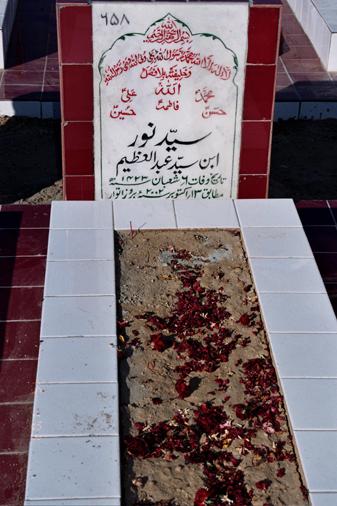 ۶۵۸
بسم اللہ الرحمن الرحیم
لا الہ الا اللہ محمد رسول اللہ علی ولی اللہ وصی رسول اللہ
وخلیفتہ بلا فصل
اللہ
محمدؐ علیؑ
فاطمہؑ
حسنؑ حسینؑ
سیّد نور
ابن سیّد عبدالعظیم
تاریخ وفات ۶ شعبان ۱۴۲۳ھ
مطابق ۱۳ اکتوبر ۲۰۰۲ء بروز اتوار